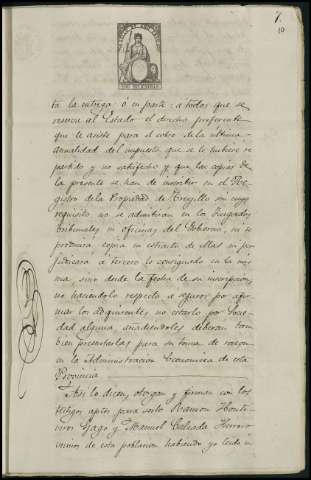 7.
10
ta la entrega ó en parte: a todas que se
reserva al Estado el derecho preferente
que le asiste para el cobro de la ultima
anualidad del impuesto que se le hubiere re
partido y no satisfecho y que las copias de
la presente se han de inscribir en el Re
gistro de la Propiedad de Trujillo sin cuyo
requisito no se admitiran en los Juzgados
tribunales ni oficinas del Gobierno, ni se
producira copia ni estracto de ellas ni per
judicará á tercero lo consignado en la mis
ma, sino desde la fecha de su inscripcion,
no haciendolo respecto a seguros por afir
mar los adquirentes no estarlo por Socie
dad alguna, añadiendoles deberan tam
bien presentarlas para su toma de razon
en la Administracion Economica de esta
Provincia
Asi lo dicen, otorgan y firman con los
testigos aptos para serlo Ramon Monti
Gago y Manuel Calzada Herrero
vecinos de esta poblacion habiendo yo leido in